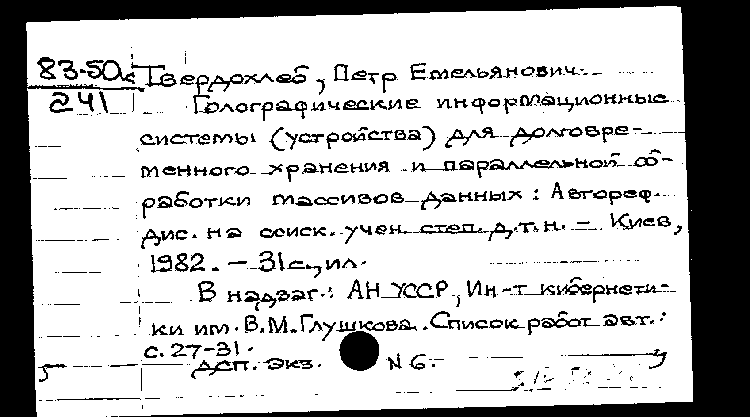 83-50к Твердохлеб, Петр Емельянович.
241 Голографические информационные
системы (устройства) для долговре-
менного хранения и параллельной об-
работки массивов данных: Автореф.
дис. на соиск. учен. степ. д.т.н. – Киев,
1982. – 31 с., ил.
В надзаг.: АН УССР, Ин-т кибернети-
ки им. В.М.Глушкова. Список работ авт.:
с. 27-31.
ДСП. Экз. N 6.